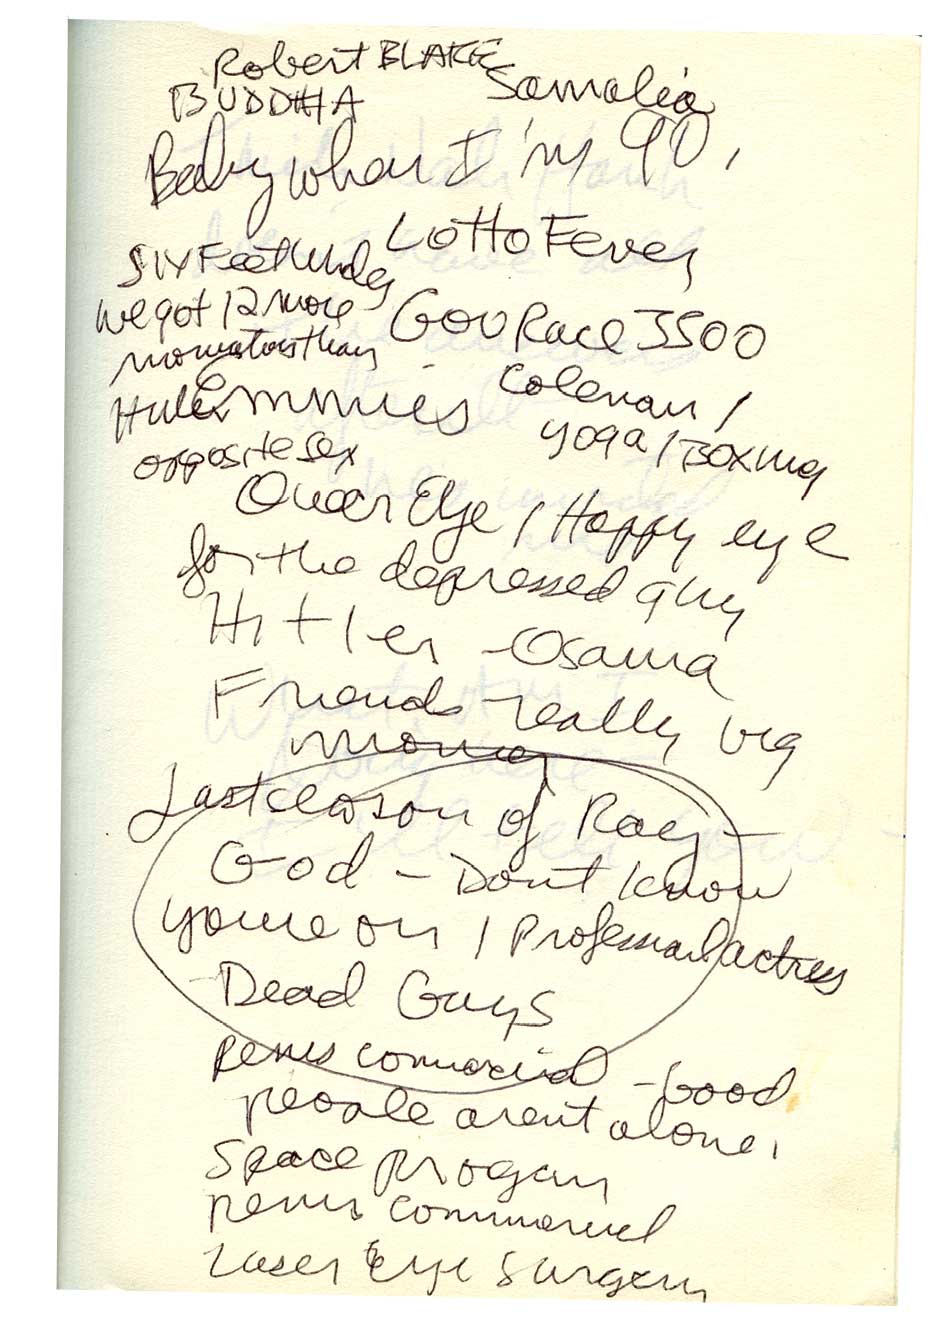 Robert BLAKE
BUDDHA Somalia
Baby when I'm 90,
Lotto Fever
Six Feet Under
we got 12 more Gov Race 3500
than
Coleman /
Emmies yoga / Boxing
opposite sex
Queer Eye / Happy eye
for the depressed guy
Hitler - Osama
Friends - really big
Last season of Ray -
God - Dont know
youre on / Professional actress
- Dead Guys
penis commercial - Good
people arent alone.
Space program
penis commercial
Laser Eye Surgery